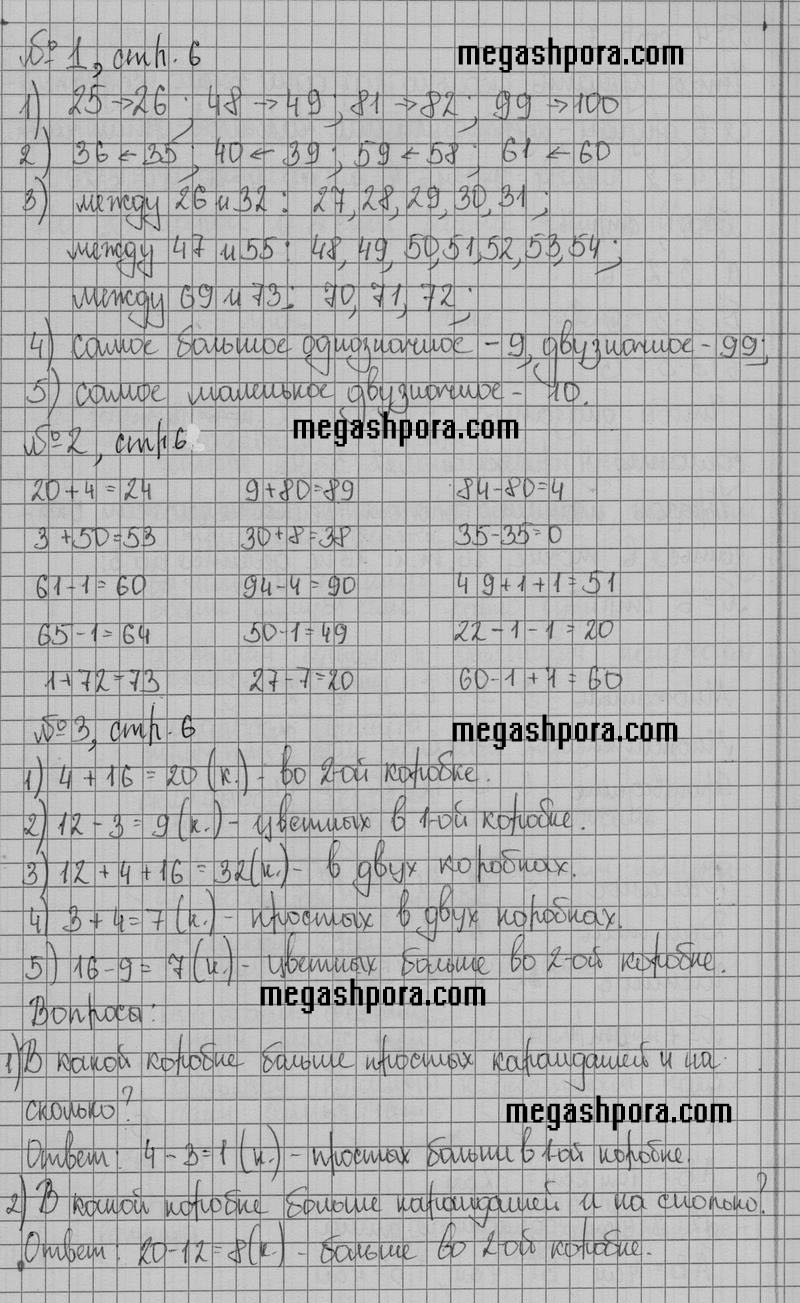 № 1, стр. 6 megashpora.com
1) 25→26; 48→49; 81→82; 99→100
2) 36←35; 40←39; 59←58; 61←60
3) между 26 и 32: 27, 28, 29, 30, 31;
между 47 и 55: 48, 49, 50, 51, 52, 53, 54;
между 69 и 73: 70, 71, 72;
4) самое большое однозначное - 9, двузначное - 99;
5) самое маленькое двузначное - 10.
megashpora.com
№ 2, стр 6
20+4=24 9+80=89 84-80=4
3+50=53 30+8=38 35-35=0
61-1=60 94-4=90 49+1+1=51
65-1=64 50-1=49 22-1-1=20
1+72=73 27-7=20 60-1+1=60
№ 3, стр. 6 megashpora.com
1) 4+16=20 (к.) - во 2-ой коробке.
2) 12-3=9 (к.) - цветных в 1-ой коробке.
3) 12+4+16=32 (к.) - в двух коробках.
4) 3+4=7 (к.) - простых в двух коробках.
5) 16-9=7 (к.) - цветных больше во 2-ой коробке.
megashpora.com
Вопросы:
1) В какой коробке больше простых карандашей и на
сколько?
megashpora.com
Ответ: 4-3=1 (к.) - простых больше в 1-ой коробке.
2) В какой коробке больше карандашей и на сколько?
Ответ: 20-12=8 (к.) - больше во 2-ой коробке.